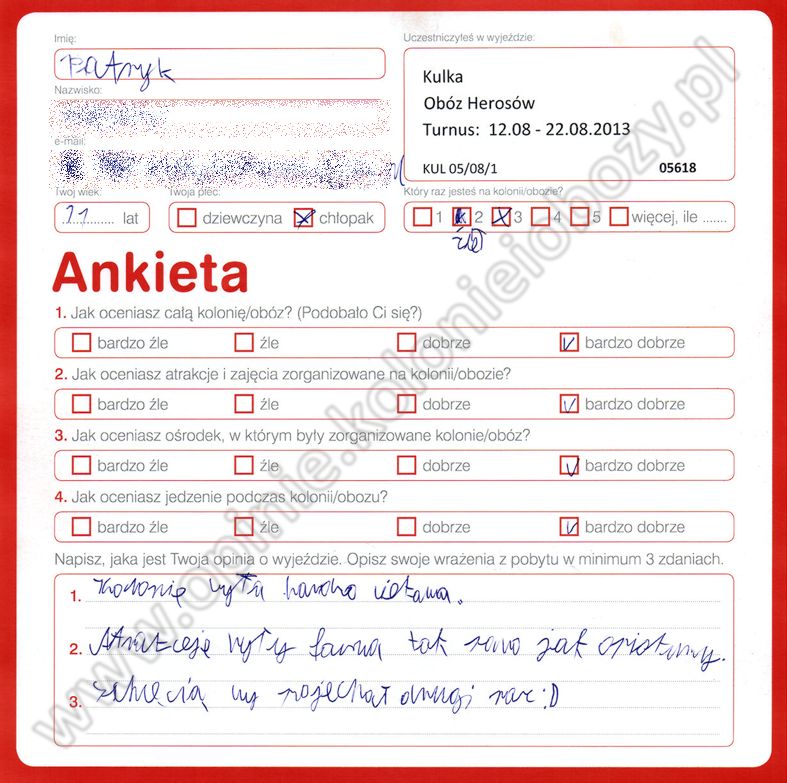 Imię:
Patryk
Nazwisko:
e-mail:
Twój wiek:
11 lat
Twoja płeć:
dziewczyna chłopak
Uczestniczyłeś w wyjeździe:
Kulka
Obóz Herosów
Turnus: 12.08 - 22.08.2013
KUL 05/08/1 05618
Który raz jesteś na kolonii/obozie?
1 2 3 4 5 więcej, ile .......
Ankieta
1. Jak oceniasz całą kolonię/obóz? (Podobało Ci się?)
bardzo źle źle dobrze bardzo dobrze
2. Jak oceniasz atrakcje i zajęcia zorganizowane na kolonii/obozie?
bardzo źle źle dobrze bardzo dobrze
3. Jak oceniasz ośrodek, w którym były zorganizowane kolonie/obóz?
bardzo źle źle dobrze bardzo dobrze
4. Jak oceniasz jedzenie podczas kolonii/obozu?
bardzo źle źle dobrze bardzo dobrze
Napisz, jaka jest Twoja opinia o wyjeździe. Opisz swoje wrażenia z pobytu w minimum 3 zdaniach.
1. Kolonie była bardzo
2. Atrakcje były tak samo jak
3. zchęcią by pojechał drugi raz :D
www.opinie.kolonieiobozy.pl